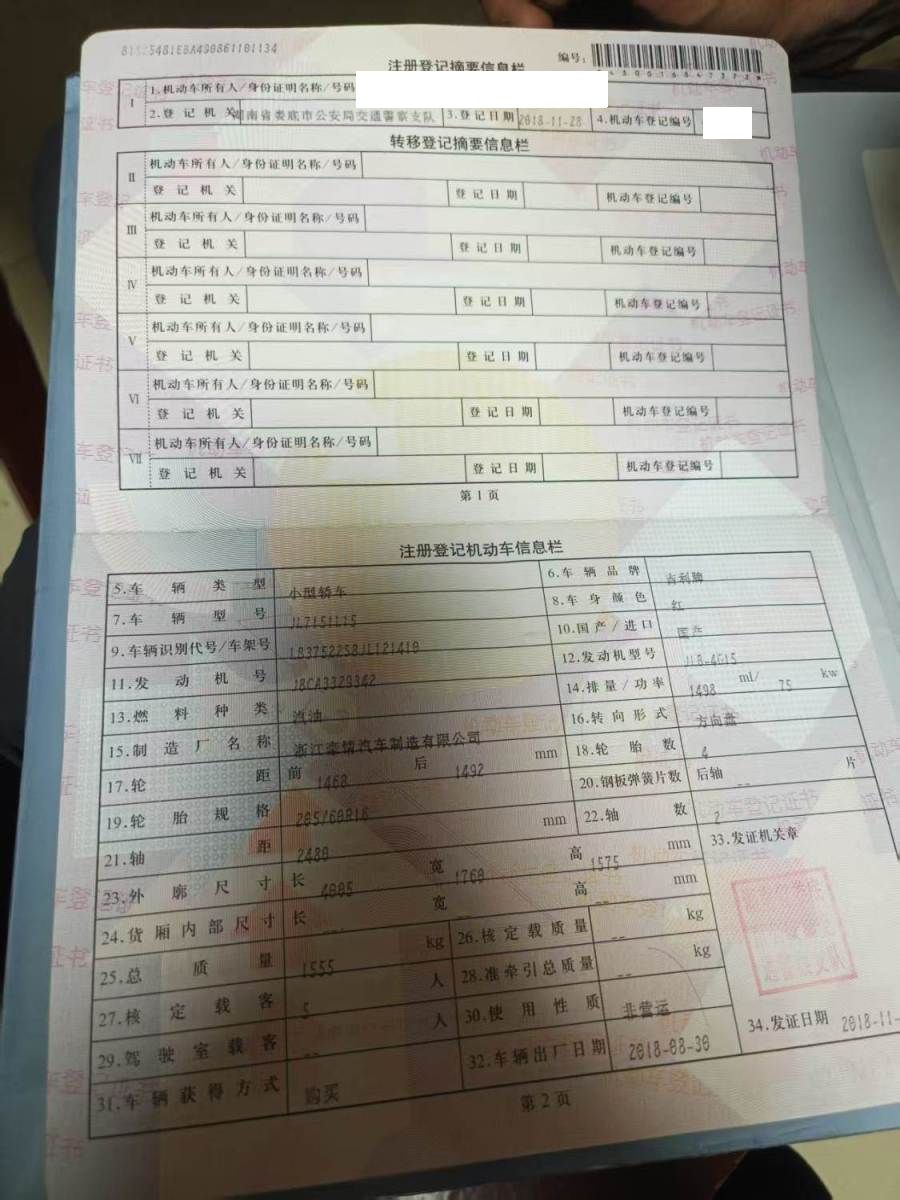 注册登记摘要信息栏
编号:
Ⅰ
1.机动车所有人/身份证明名称/号码
2.登记机关 湖南省娄底市公安局交通警察支队 3.登记日期 2018-11-28 4.机动车登记编号
转移登记摘要信息栏
Ⅱ
机动车所有人/身份证明名称/号码
登记机关 登记日期 机动车登记编号
Ⅲ
机动车所有人/身份证明名称/号码
登记机关 登记日期 机动车登记编号
Ⅳ
机动车所有人/身份证明名称/号码
登记机关 登记日期 机动车登记编号
Ⅴ
机动车所有人/身份证明名称/号码
登记机关 登记日期 机动车登记编号
Ⅵ
机动车所有人/身份证明名称/号码
登记机关 登记日期 机动车登记编号
Ⅶ
机动车所有人/身份证明名称/号码
登记机关 登记日期 机动车登记编号
第1页
注册登记机动车信息栏
5.车辆类型 小型轿车 6.车辆品牌 吉利牌
7.车辆型号 JL7151L15 8.车身颜色 红
9.车辆识别代号/车架号 LB37522S8JL121419 10.国产/进口 国产
11.发动机号 J8CA3329342 12.发动机型号 JLB-4G15
13.燃料种类 汽油 14.排量/功率 1498 ml/ 75 kw
15.制造厂名称 浙江豪情汽车制造有限公司 16.转向形式 方向盘
17.轮距 前 1468 后 1492 mm 18.轮胎数 4
19.轮胎规格 205/60R16 20.钢板弹簧片数 后轴 -- 片
21.轴距 2480 mm 22.轴数 2
23.外廓尺寸 长 4005 宽 1760 高 1575 mm 33.发证机关章
24.货厢内部尺寸 长 -- 宽 -- 高 -- mm
25.总质量 1555 kg 26.核定载质量 -- kg
27.核定载客 5 人 28.准牵引总质量 -- kg
29.驾驶室载客 -- 人 30.使用性质 非营运
31.车辆获得方式 购买 32.车辆出厂日期 2018-08-30 34.发证日期 2018-11-
第2页